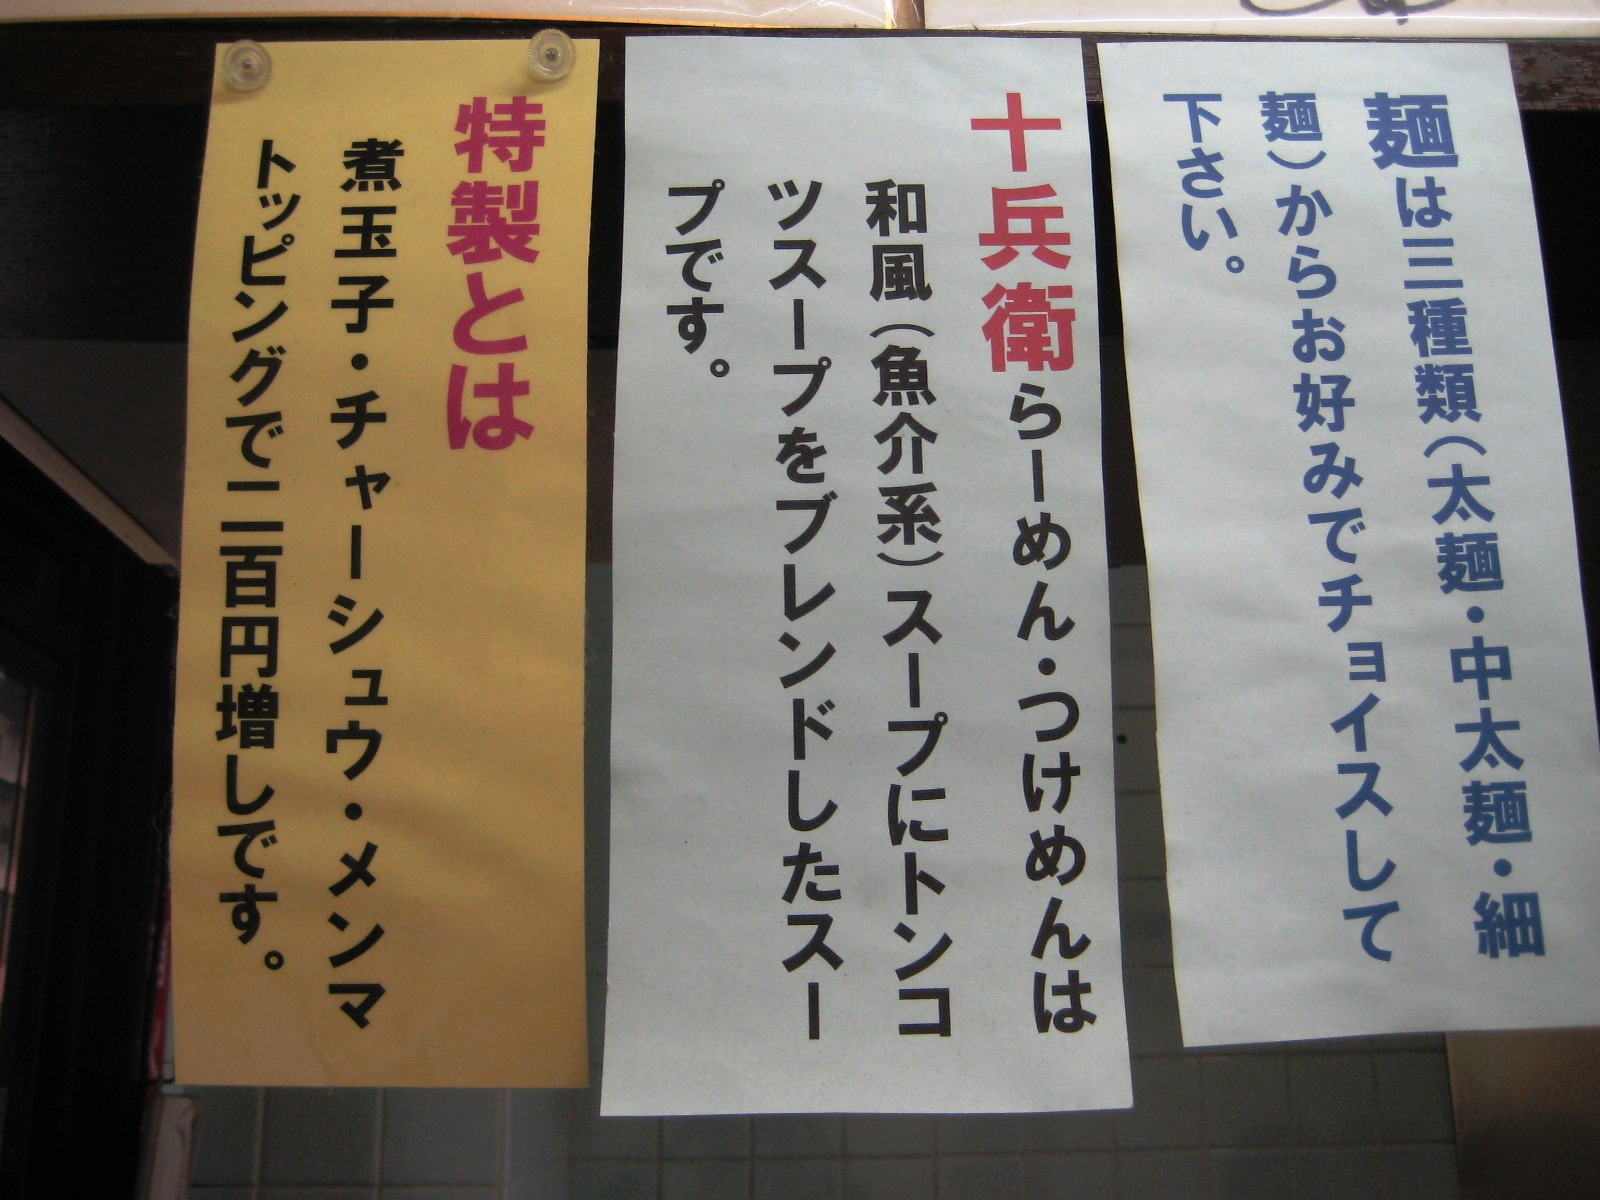 麺は三種類(太麺・中太麺・細
麺)からお好みでチョイスして
下さい。
十兵衛らーめん・つけめんは
和風(魚介系)スープにトンコ
ツスープをブレンドしたスー
プです。
特製とは
煮玉子・チャーシュウ・メンマ
トッピングで二百円増しです。